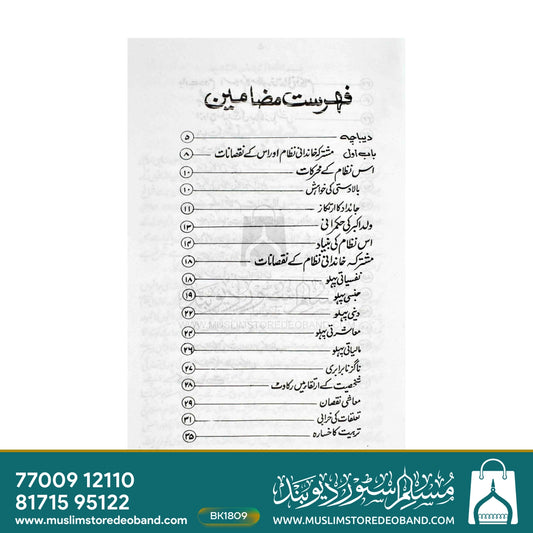 فہرست مضامین
دیباچہ ۵
باب اول مشترکہ خاندانی نظام اور اس کے نقصانات ۸
اس نظام کے محرکات ۱۰
بالادستی کی خواہش ۱۰
جائداد کا ارتکاز ۱۱
ولد اکبر کی حکمرانی ۱۳
اس نظام کی بنیاد ۱۴
مشترکہ خاندانی نظام کے نقصانات ۱۸
نفسیاتی پہلو ۱۸
جنسی پہلو ۱۹
دینی پہلو ۲۲
معاشرتی پہلو ۲۴
مالیاتی پہلو ۲۶
ناگزیر نابرابری ۲۷
شخصیت کے ارتقا میں رکاوٹ ۲۸
معاشی نقصان ۲۹
تعلقات کی خرابی ۳۱
تربیت کا خسارہ ۳۵
WWW.MUSLIMSTOREDEOBAND.COM
77009 12110
81715 95122
www.muslimstoredeoband.com
BK1809
مسلم سٹور دیوبند
WWW.MUSLIMSTOREDEOBAND.COM